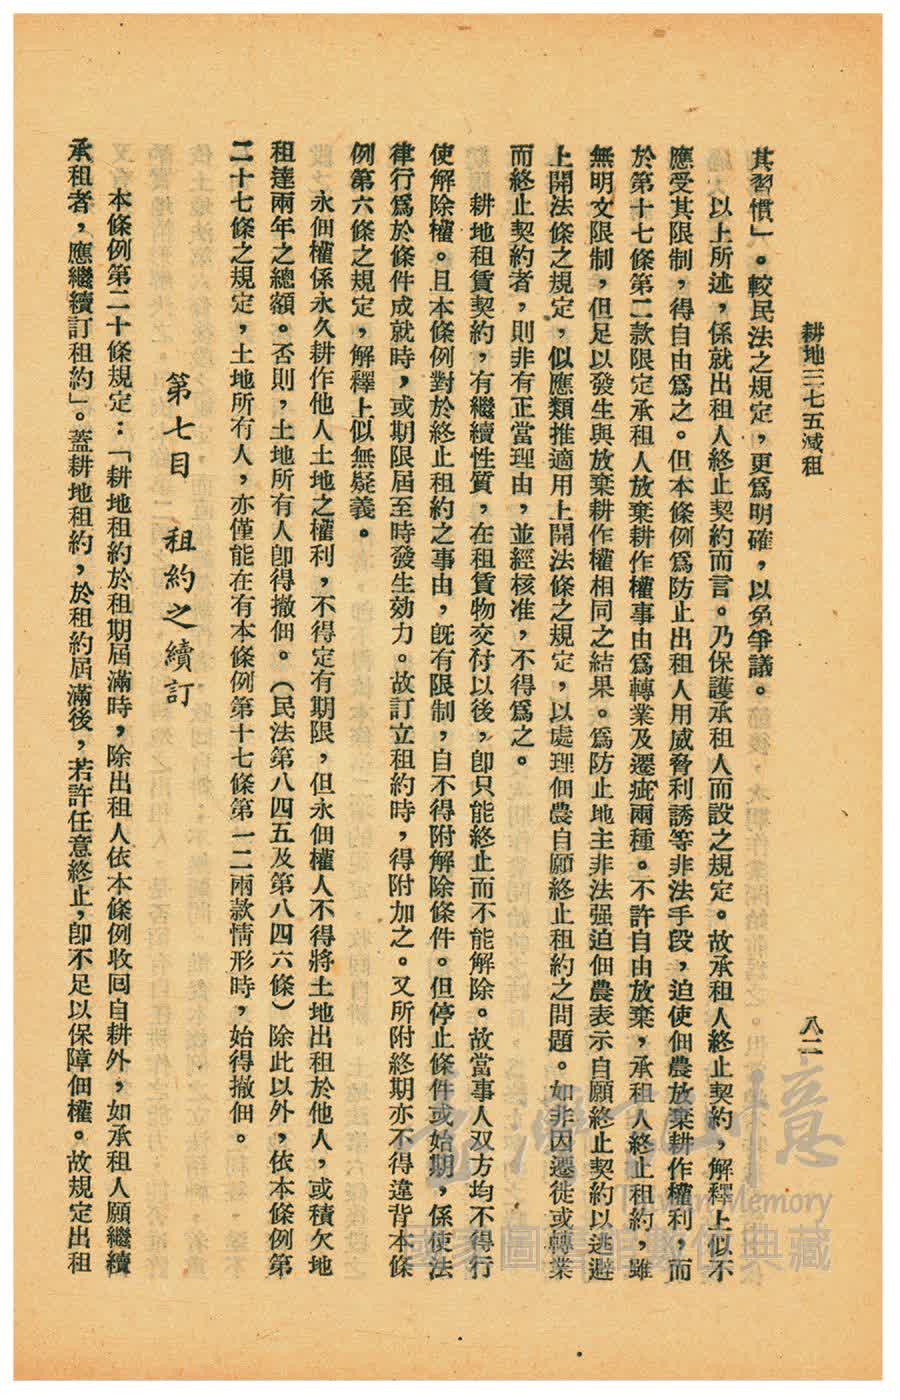 耕地三七五減租
八二
其習慣」。較民法之規定，更爲明確，以免爭議。
以上所述，係就出租人終止契約而言。乃保護承租人而設之規定。故承租人終止契約，解釋上似不
應受其限制，得自由爲之。但本條例爲防止出租人用威脅利誘等非法手段，迫使佃農放棄耕作權利，而
於第十七條第二款限定承租人放棄耕作權事由爲轉業及遷徙兩種。不許自由放棄，承租人終止租約，雖
無明文限制，但足以發生與放棄耕作權相同之結果。爲防止地主非法强迫佃農表示自願終止契約以逃避
上開法條之規定，似應類推適用上開法條之規定，以處理佃農自願終止租約之問題。如非因遷徙或轉業
而終止契約者，則非有正當理由，並經核准，不得爲之。
耕地租賃契約，有繼續性質，在租賃物交付以後，卽只能終止而不能解除。故當事人双方均不得行
使解除權。且本條例對於終止租約之事由，旣有限制，自不得附解除條件。但停止條件或始期，係使法
律行爲於條件成就時，或期限屆至時發生効力。故訂立租約時，得附加之。又所附終期亦不得違背本條
例第六條之規定，解釋上似無疑義。
永佃權係永久耕作他人土地之權利，不得定有期限，但永佃權人不得將土地出租於他人，或積欠地
租達兩年之總額。否則，土地所有人卽得撤佃。（民法第八四五及第八四六條）除此以外，依本條例第
二十七條之規定，土地所有人，亦僅能在有本條例第十七條第一二兩款情形時，始得撤佃。
第七目　租約之續訂
本條例第二十條規定：「耕地租約於租期屆滿時，除出租人依本條例收囘自耕外，如承租人願繼續
承租者，應繼續訂租約」。蓋耕地租約，於租約屆滿後，若許任意終止，卽不足以保障佃權。故規定出租
臺灣記憶
Taiwan Memory
國家圖書館數位典藏